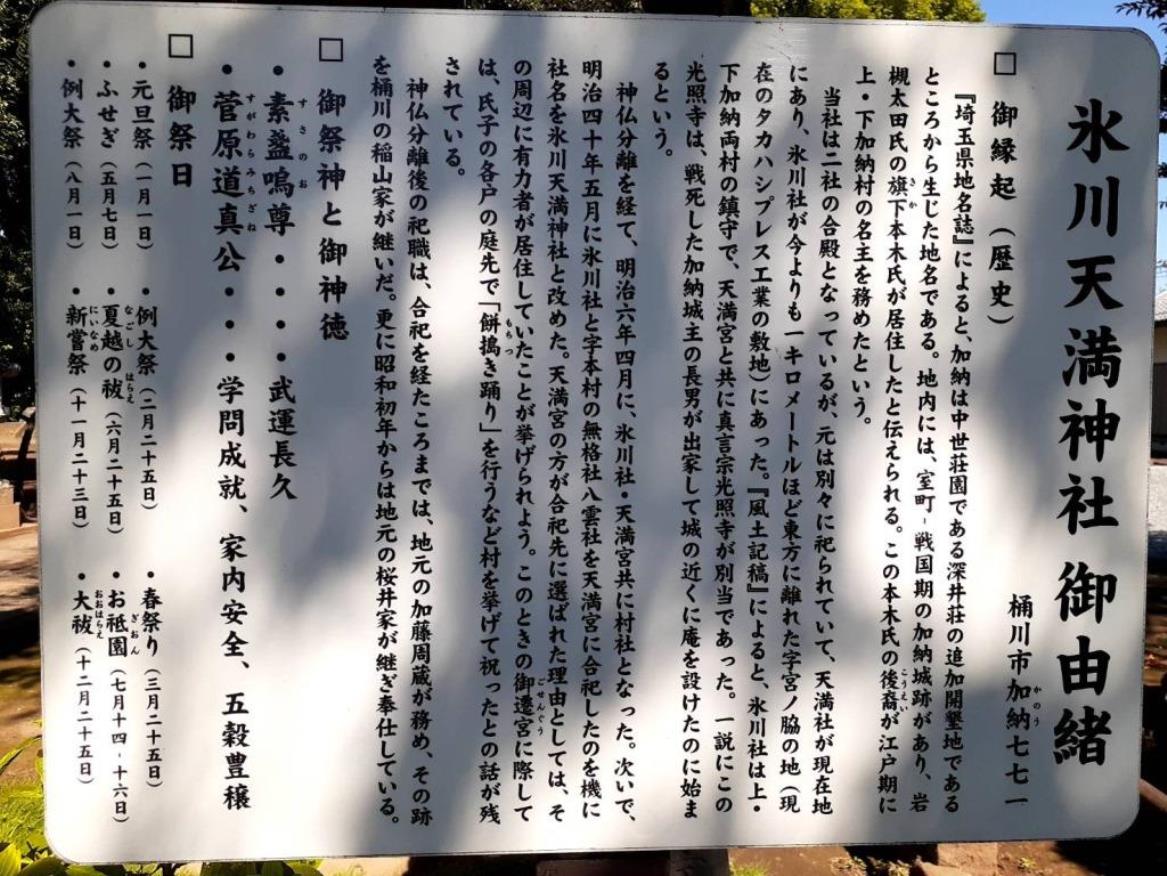 氷川天満神社 御由緒
桶川市加納七七一
□ 御縁起（歴史）
『埼玉県地名誌』によると、加納は中世荘園である深井荘の追加開墾地である
ところから生じた地名である。地内には、室町‐戦国期の加納城跡があり、岩
槻太田氏の旗下本木氏が居住したと伝えられる。この本木氏の後裔が江戸期に
上・下加納村の名主を務めたという。
当社は二社の合殿となっているが、元は別々に祀られていて、天満社が現在地
にあり、氷川社が今よりも一キロメートルほど東方に離れた字宮ノ脇の地（現
在のタカハシプレス工業の敷地）にあった。『風土記稿』によると、氷川社は上・
下加納両村の鎮守で、天満宮と共に真言宗光照寺が別当であった。一説にこの
光照寺は、戦死した加納城主の長男が出家して城の近くに庵を設けたのに始ま
るという。
神仏分離を経て、明治六年四月に、氷川社・天満宮共に村社となった。次いで、
明治四十年五月に氷川社と字本村の無格社八雲社を天満宮に合祀したのを機に
社名を氷川天満神社と改めた。天満宮の方が合祀先に選ばれた理由としては、そ
の周辺に有力者が居住していたことが挙げられよう。このときの御遷宮に際して
は、氏子の各戸の庭先で「餅搗き踊り」を行うなど村を挙げて祝ったとの話が残
されている。
神仏分離後の祀職は、合祀を経たころまでは、地元の加藤周蔵が務め、その跡
を桶川の稲山家が継いだ。更に昭和初年からは地元の桜井家が継ぎ奉仕している。
□ 御祭神と御神徳
・素盞嗚尊・・・・武運長久
・菅原道真公・・・学問成就、家内安全、五穀豊穣
□ 御祭日
・元旦祭（一月一日） ・例大祭（二月二十五日） ・春祭り（三月二十五日）
・ふせぎ（五月七日） ・夏越の祓（六月二十五日） ・お祗園（七月十四‐十六日）
・例大祭（八月一日） ・新嘗祭（十一月二十三日） ・大祓（十二月二十五日）